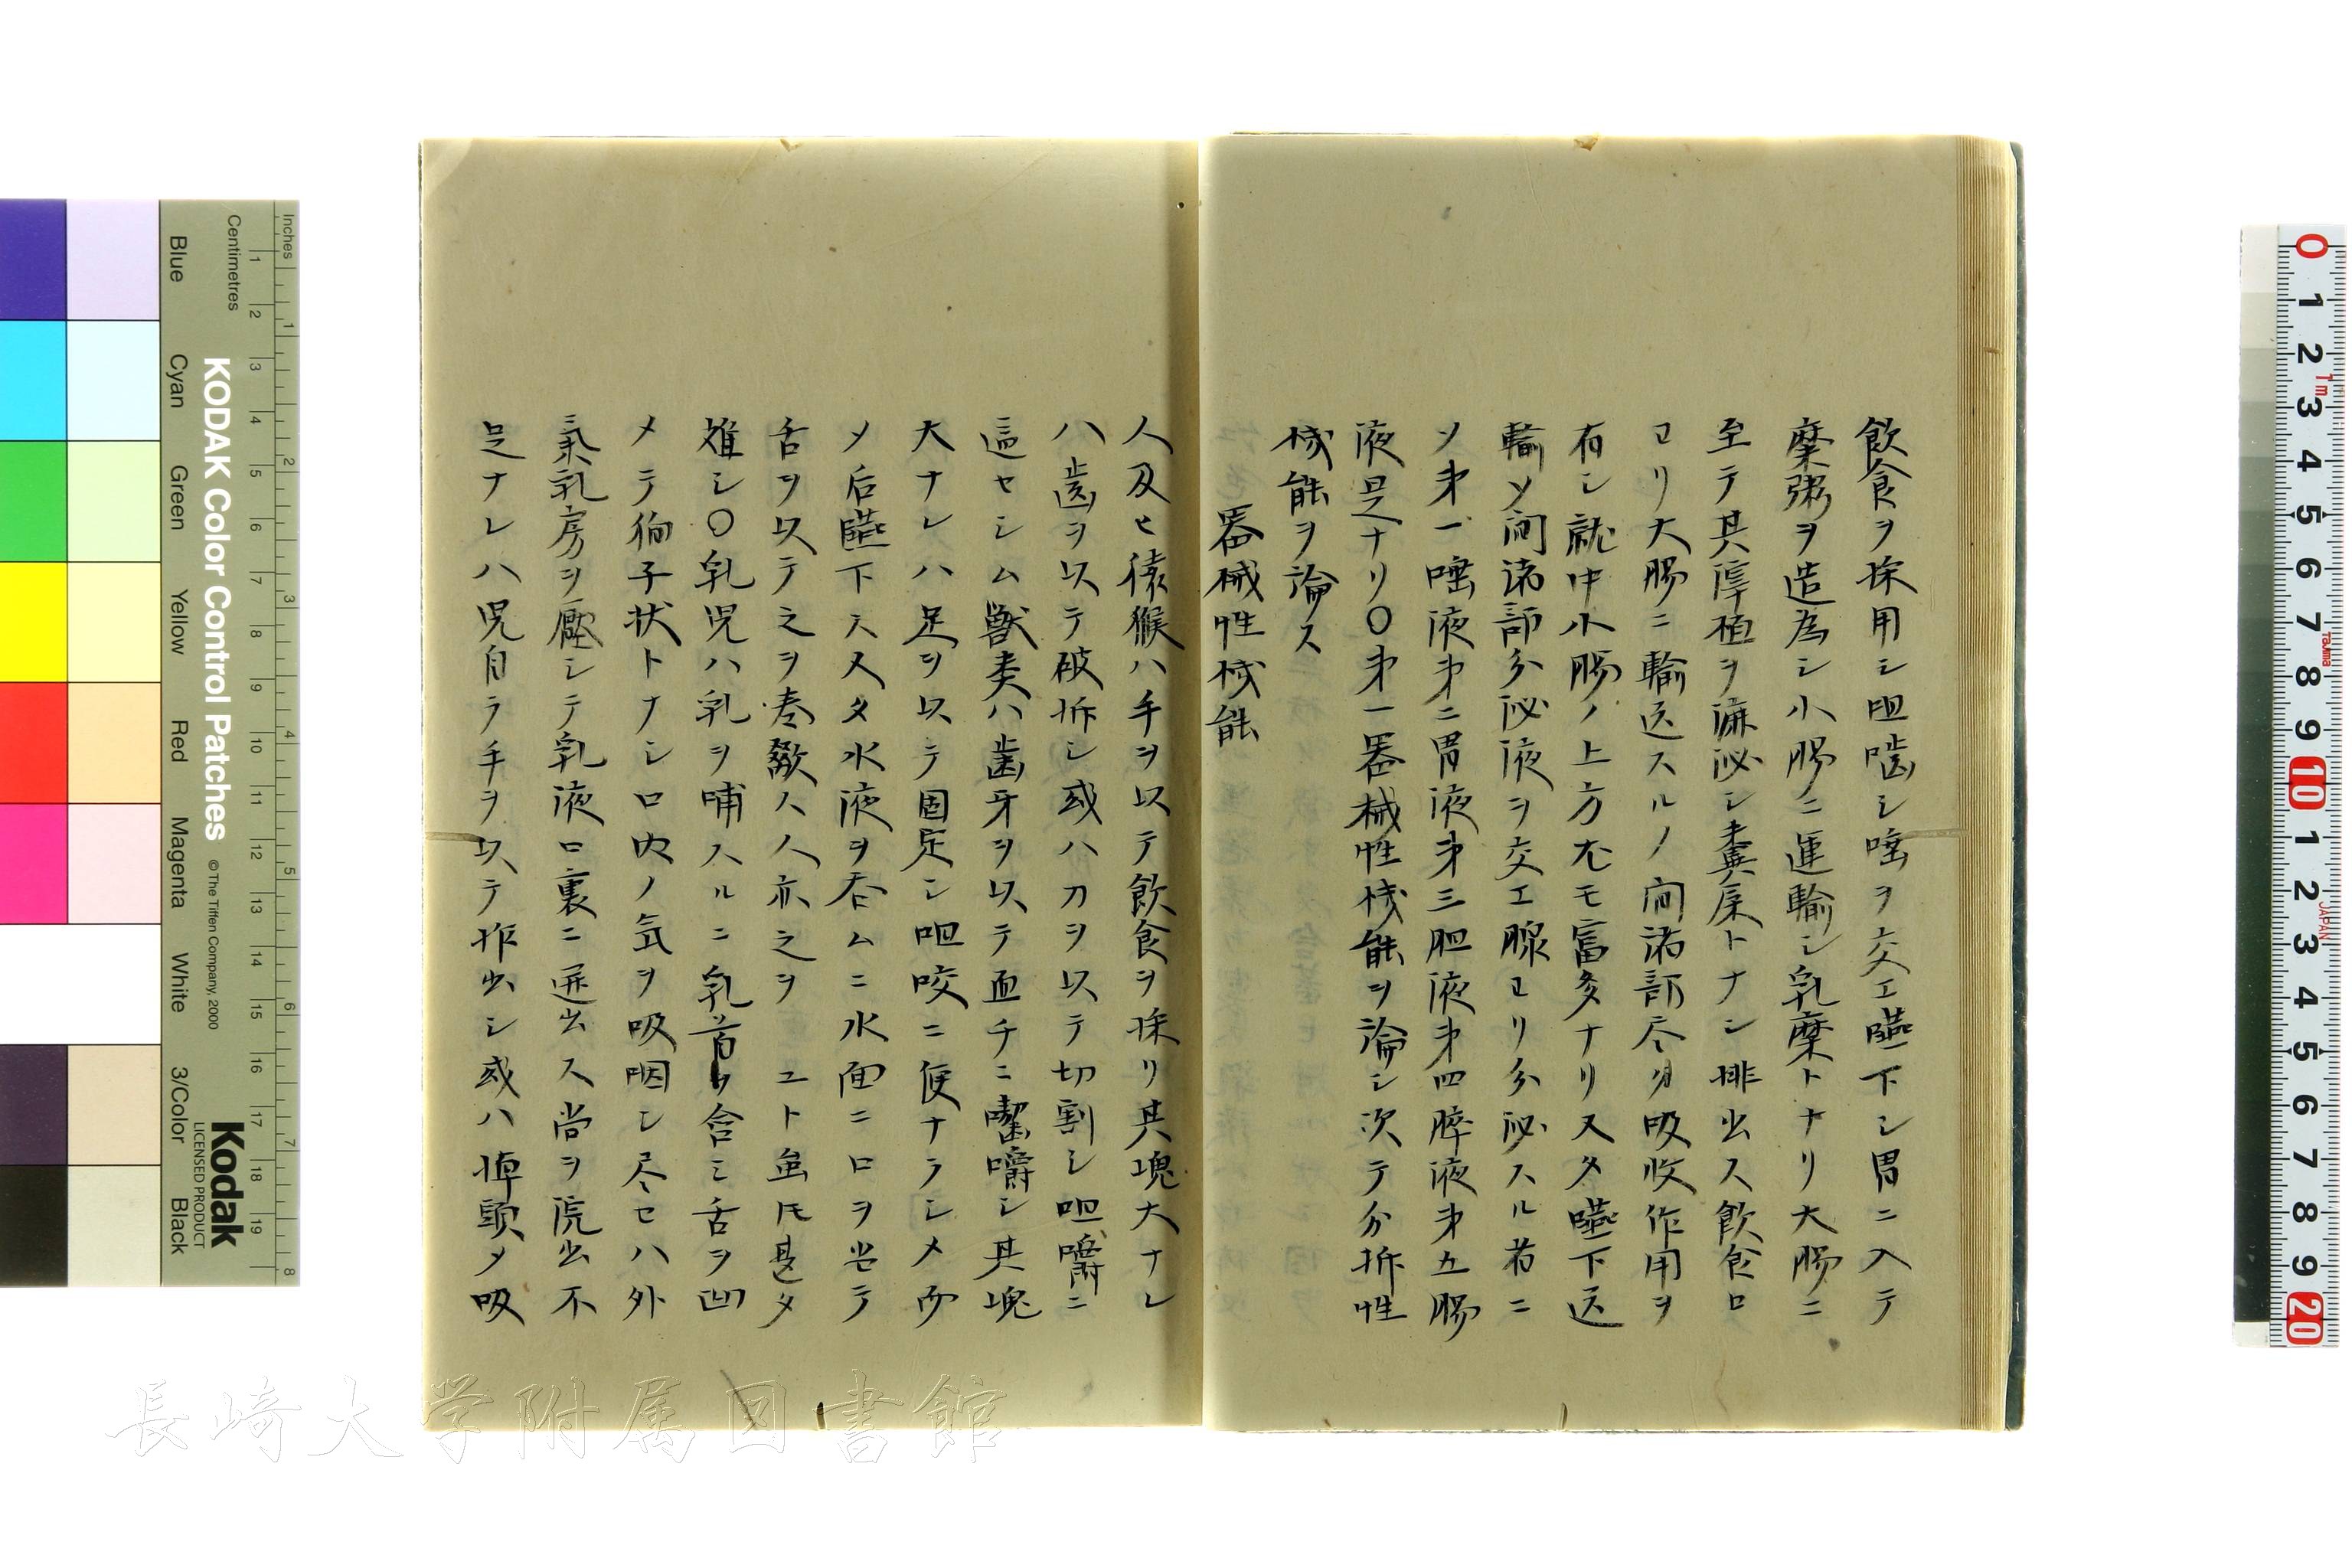 飲食ヲ採用シ咀嚙シ唾ヲ交エ嚥下シ胃ニ入テ
糜粥ヲ造為シ小腸ニ運輸シ乳糜トナリ大腸ニ
至テ其滓殖ヲ瀝泌シ糞尿トナシ排出ス飲食口
ヨリ大腸ニ輸送スルノ間諸部尽ク吸收作用ヲ
有シ就中小腸ノ上方尤モ富多ナリ又タ嚥下送
輸ノ間諸部分泌液ヲ交エ腺ヨリ分泌スル者ニ
ソ第一唾液第二胃液第三胆液第四膵液第五腸
液是ナリ〇第一器械性機能ヲ論シ次テ分拆性
機能ヲ論ス
器械性機能
人及ヒ猿猴ハ手ヲ以テ飲食ヲ採リ其塊大ナレ
ハ歯ヲ以テ破拆シ或ハ刀ヲ以テ切割シ咀嚼ニ
適セシム獣类ハ歯牙ヲ以テ直チニ嚙嚼シ其塊
大ナレハ足ヲ以テ固定シ咀咬ニ便ナラシメ而
ソ后嚥下ス又タ水液ヲ呑ムニ水面ニ口ヲ当テ
舌ヲ以テ之ヲ巻歠ス人亦之ヲ ユト虽𪜈甚タ
难シ〇乳児ハ乳ヲ哺スルニ乳首ヲ含ミ舌ヲ凹
メテ 子状トナシ口内ノ気ヲ吸咽シ尽セハ外
氣乳房ヲ壓シテ乳液口裏ニ迸出ス尚ヲ流出不
足ナレハ児自ラ手ヲ以テ搾出シ或ハ掉頭メ吸
KODAK Color Control Patches
© The Tiffen Company, 2000
Kodak
LICENSED PRODUCT
Inches
Centimetres
Blue
Cyan
Green
Yellow
Red
Magenta
White
3/Color
Black
長崎大学附属図書館